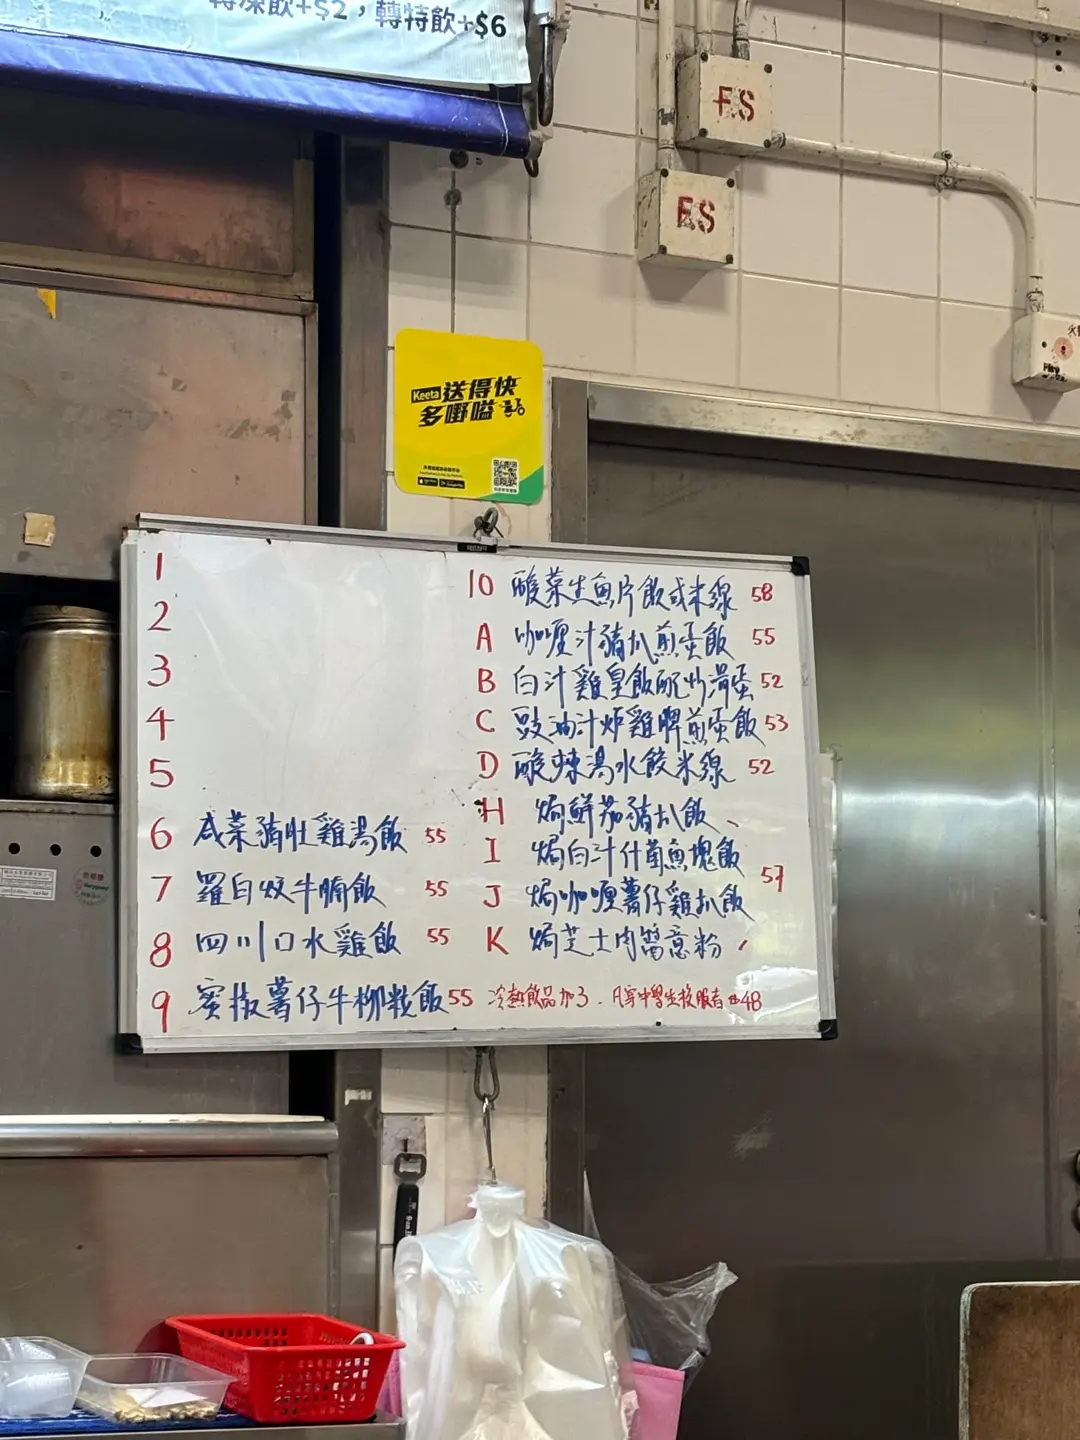 轉凍飲+$2，轉特飲+$6
ES
ES
火
Keeta 送得快
多嘢嗌
1
2
3
4
5
6 咸菜豬肚雞湯飯 55
7 羅白炆牛腩飯 55
8 四川口水雞飯 55
9 蜜椒薯仔牛柳粒飯 55
10 酸菜生魚片飯或米線 58
A 咖喱汁豬扒煎蛋飯 55
B 白汁雞皇飯配炒滑蛋 52
C 豉油汁炸雞髀煎蛋飯 53
D 酸辣湯水餃米線 52
H 焗鮮茄豬扒飯
I 焗白汁什菌魚塊飯
57
J 焗咖喱薯仔雞扒飯
K 焗芝士肉醬意粉
冷熱飲品加3. 凡穿中學生校服者 48